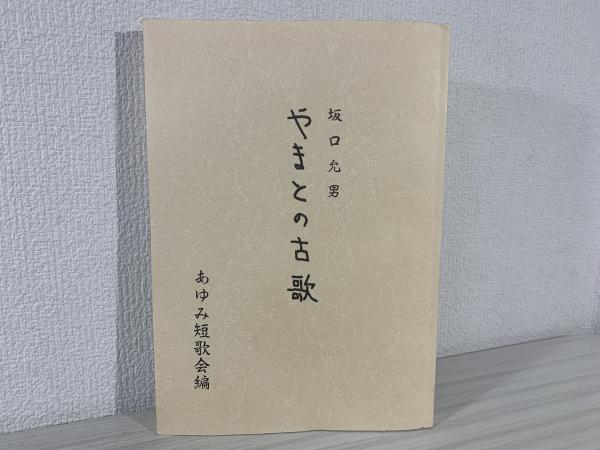 坂口允男
やまとの古歌
あゆみ短歌会編